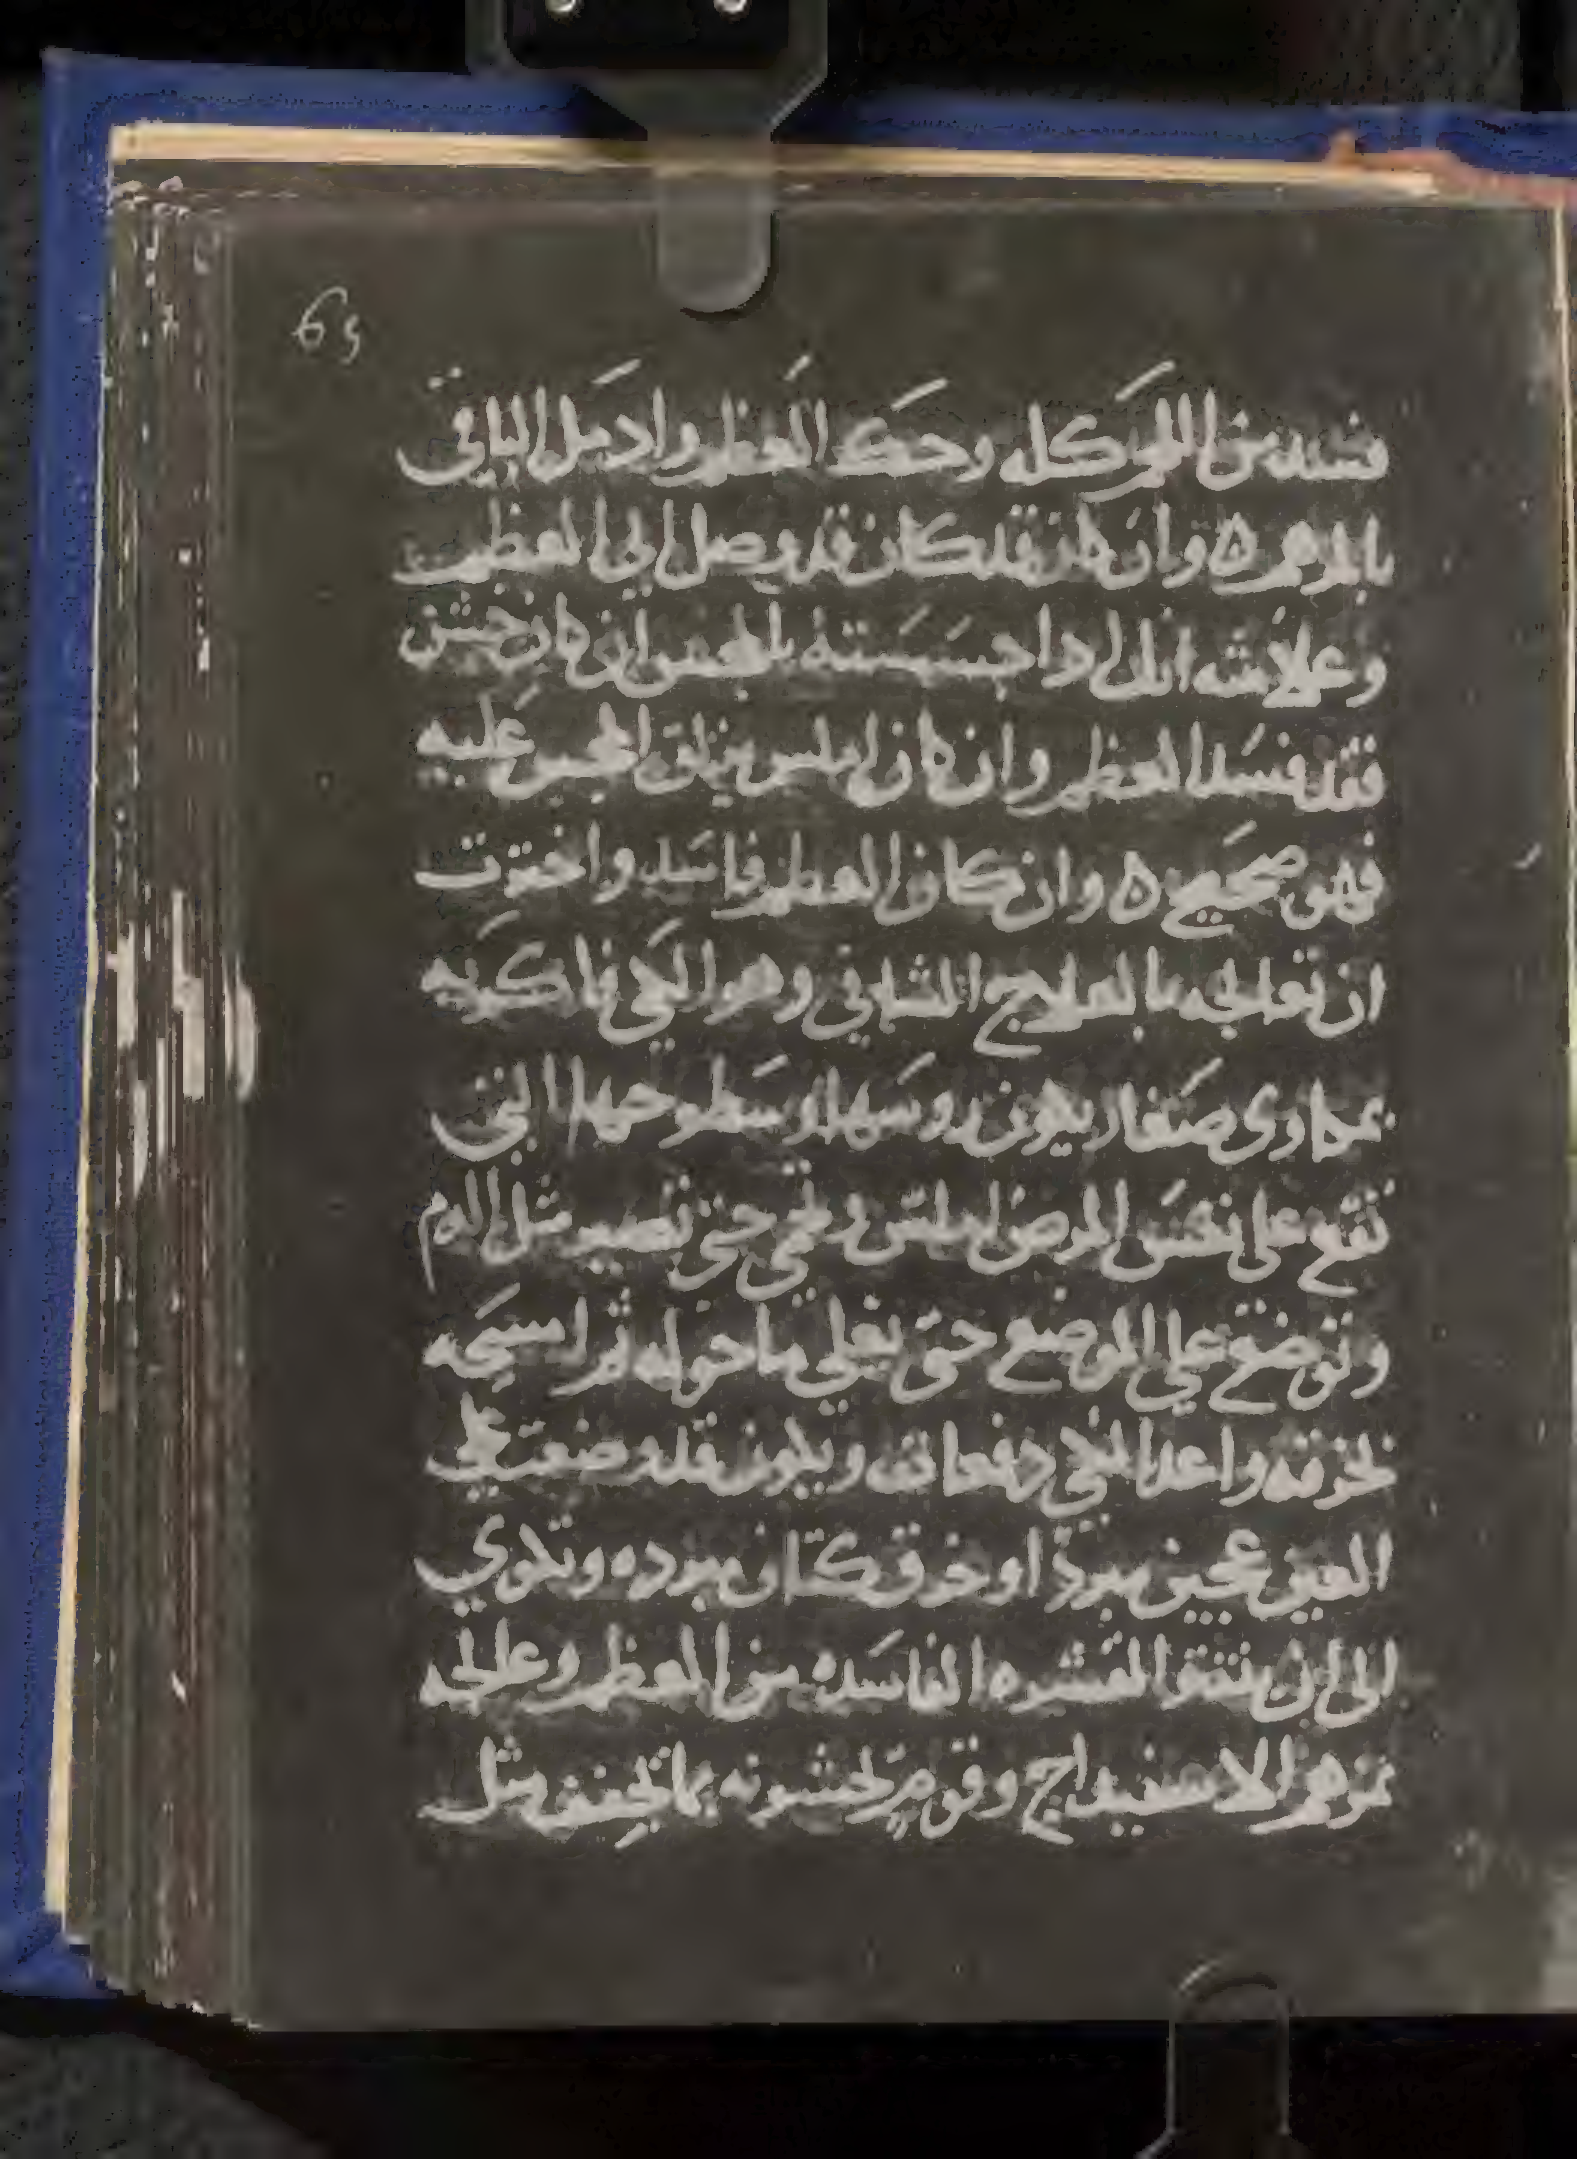 65
فسد من اللحم كله وحك العظم وادمل الباقي
بالمرهم ه وان كان قد كان قد وصل الي العظم
وعلامته انك اذا جسسته بالمجس ان كان خشن
فقد فسد العظم وان كان املس يزلق المجس عليه
فهو صحيح ه وان كان العظم فاسد واخترت
ان تعالجه بالعلاج الثاني وهو الكي فاكويه
بمكاوي صغار يكون روسها وسطوحها التي
تقع على نفس المرض املس وتحمى حتى تصير مثل الدم
وتوضع علي الموضع حتى يغلي ما حوله ثم امسحه
بخرقه واعد الكي دفعات ويكون قد وضعت على
العين عجين مبرد او خرق كتان مبرده وتكوي
الى ان تنقى القشره الفاسده من العظم وعالجه
بمرهم الاسفيداج وقوم خشونه بما تجفف مثل